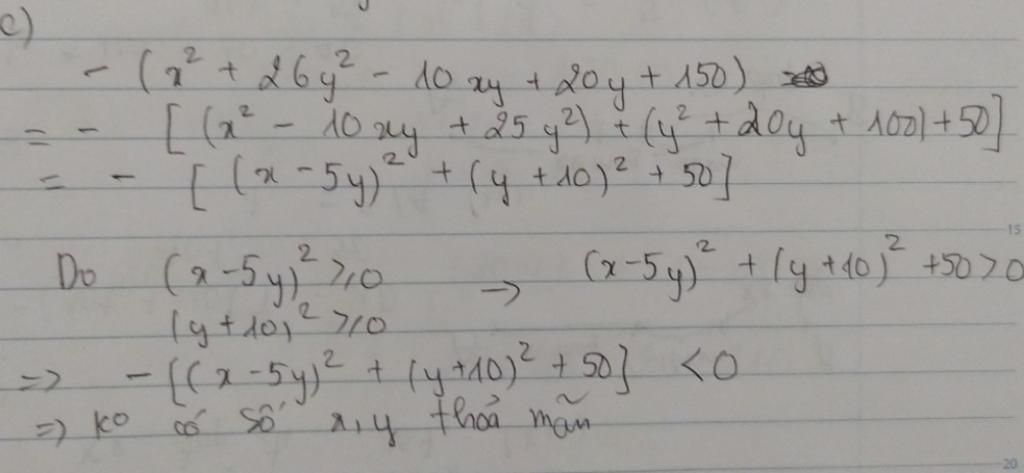 c)
- (x² + 26y² - 10xy + 20y + 150)
= - [(x² - 10xy + 25y²) + (y² + 20y + 100) + 50]
= - [(x - 5y)² + (y + 10)² + 50]
15
Do (x - 5y)² ≥ 0 → (x - 5y)² + (y + 10)² + 50 > 0
(y + 10)² ≥ 0
=> - [(x - 5y)² + (y + 10)² + 50] < 0
=> ko có số x, y thoả mãn
20